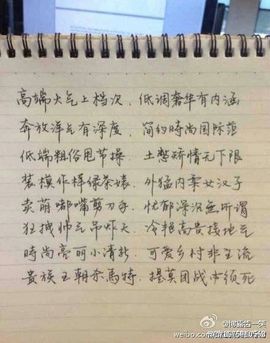 高端大气上档次，低调奢华有内涵
奔放洋气有深度，简约时尚国际范
低端粗俗甩节操，土憋矫情无下限
装模作样绿茶婊，外猛内柔女汉子
卖萌嘟嘴剪刀手，忧郁深沉无所谓
狂拽帅气吊炸天，冷艳高贵接地气
時尚亮丽小清新，可爱乡村非主流
贵族王朝杀马特，提莫团战必须死
weibo.com/